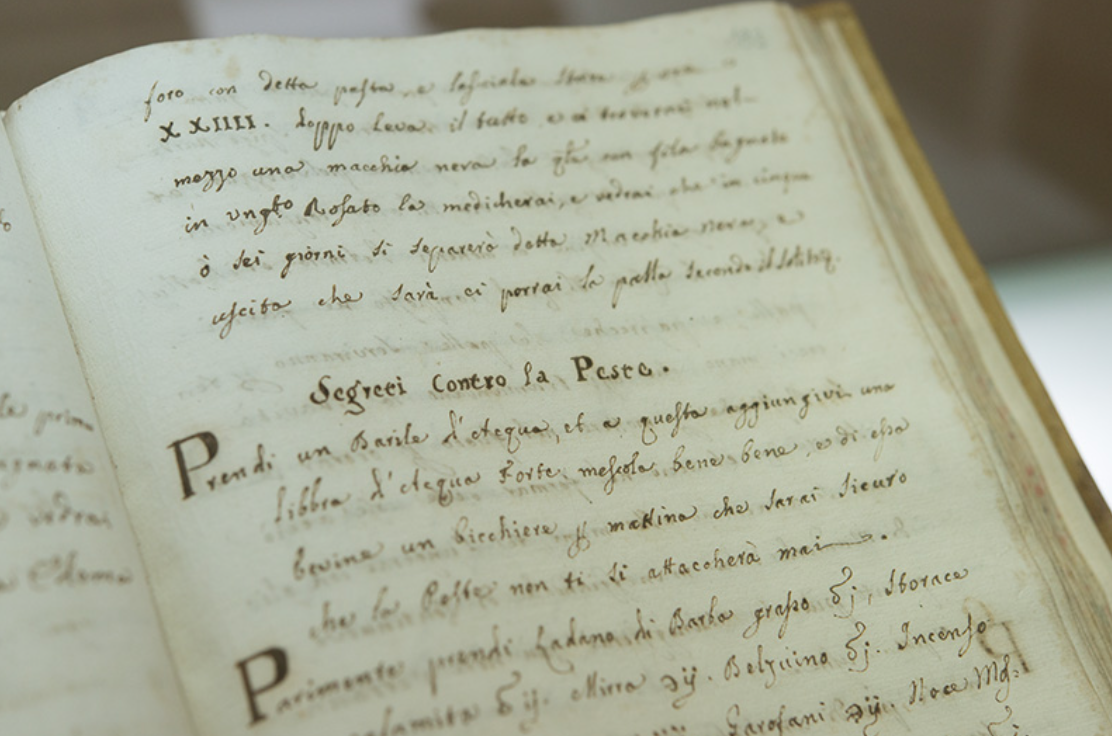 foro con detta pasta, e lasciala stare
XXIIII. doppo leva il tutto, e ci troverai nel
mezzo una macchia nera la qle con fila bagnate
in ungto Rosato la medicherai, e vedrai che in cinque
ò sei giorni si separerà detta Macchia nera, e
uscita che sarà ci porrai la palla secondo il solito.
Segreti Contro la Peste.
Prendi un Barile d'Acqua, et a questa aggiungivi una
libbra d'Acqua Forte, mescola bene bene, e di essa
bevine un bicchiere mattina che sarai sicuro
che la Peste non ti si attaccherà mai.
Parimente prendi Ladano di Barba grasso ℥j, Storace
Calamita ℥ij. Mirra ℈ij. Belzuino ℥j. Incenso
Garofani ℈ij. Noce Mosc: